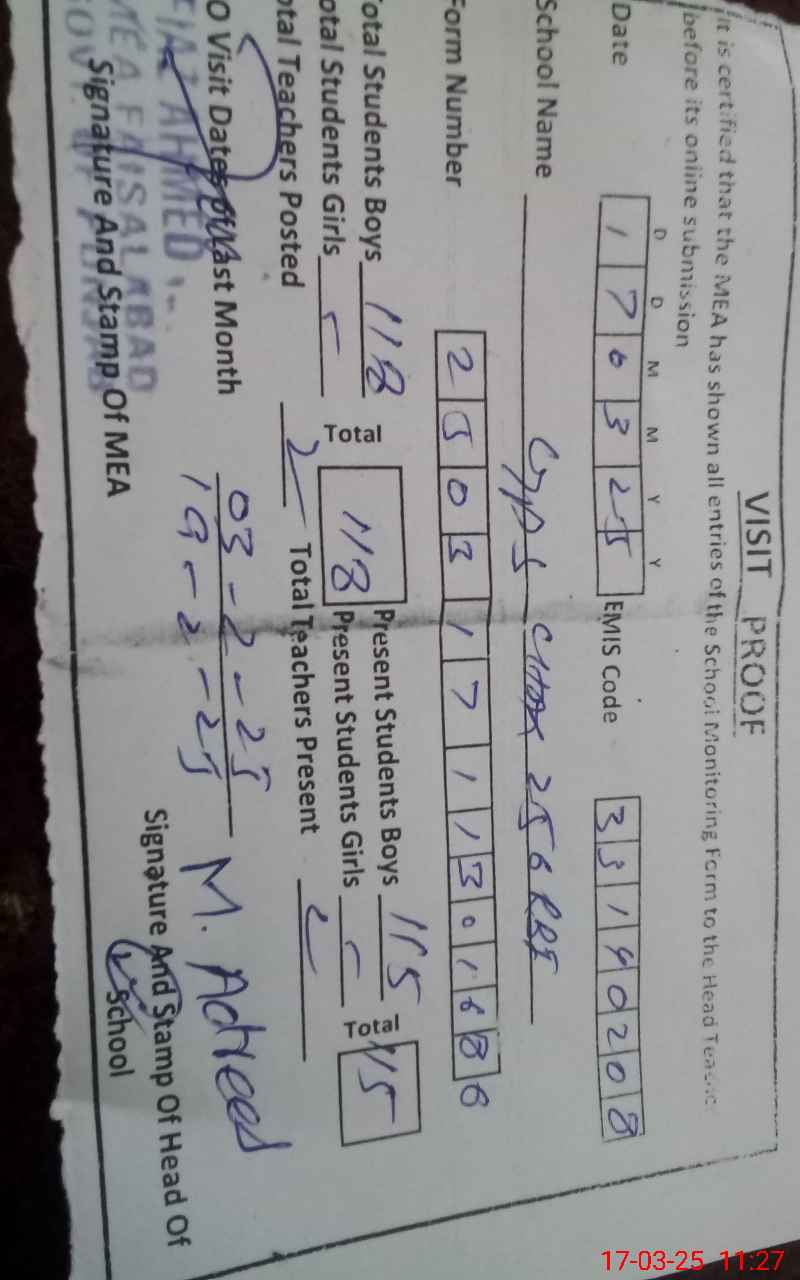 VISIT PROOF
It is certified that the MEA has shown all entries of the School Monitoring Form to the Head Teacher
before its online submission
D D M M Y Y
Date 1 7 0 3 2 5 EMIS Code 3 3 1 4 0 2 0 8
School Name 256 RB
Form Number 2 5 0 3 1 7 1 1 3 0 1 6 8 6
Total Students Boys 118 Total 118 Present Students Boys 115 Total 115
otal Students Girls - Present Students Girls -
otal Teachers Posted 2 Total Teachers Present 2
O Visit Dates of Last Month 03-2-25
19-2-25
M. Adrees
FIAZ AHMED
MEA FAISALABAD
Signature And Stamp Of MEA
Signature And Stamp Of Head Of
School
17-03-25 11:27